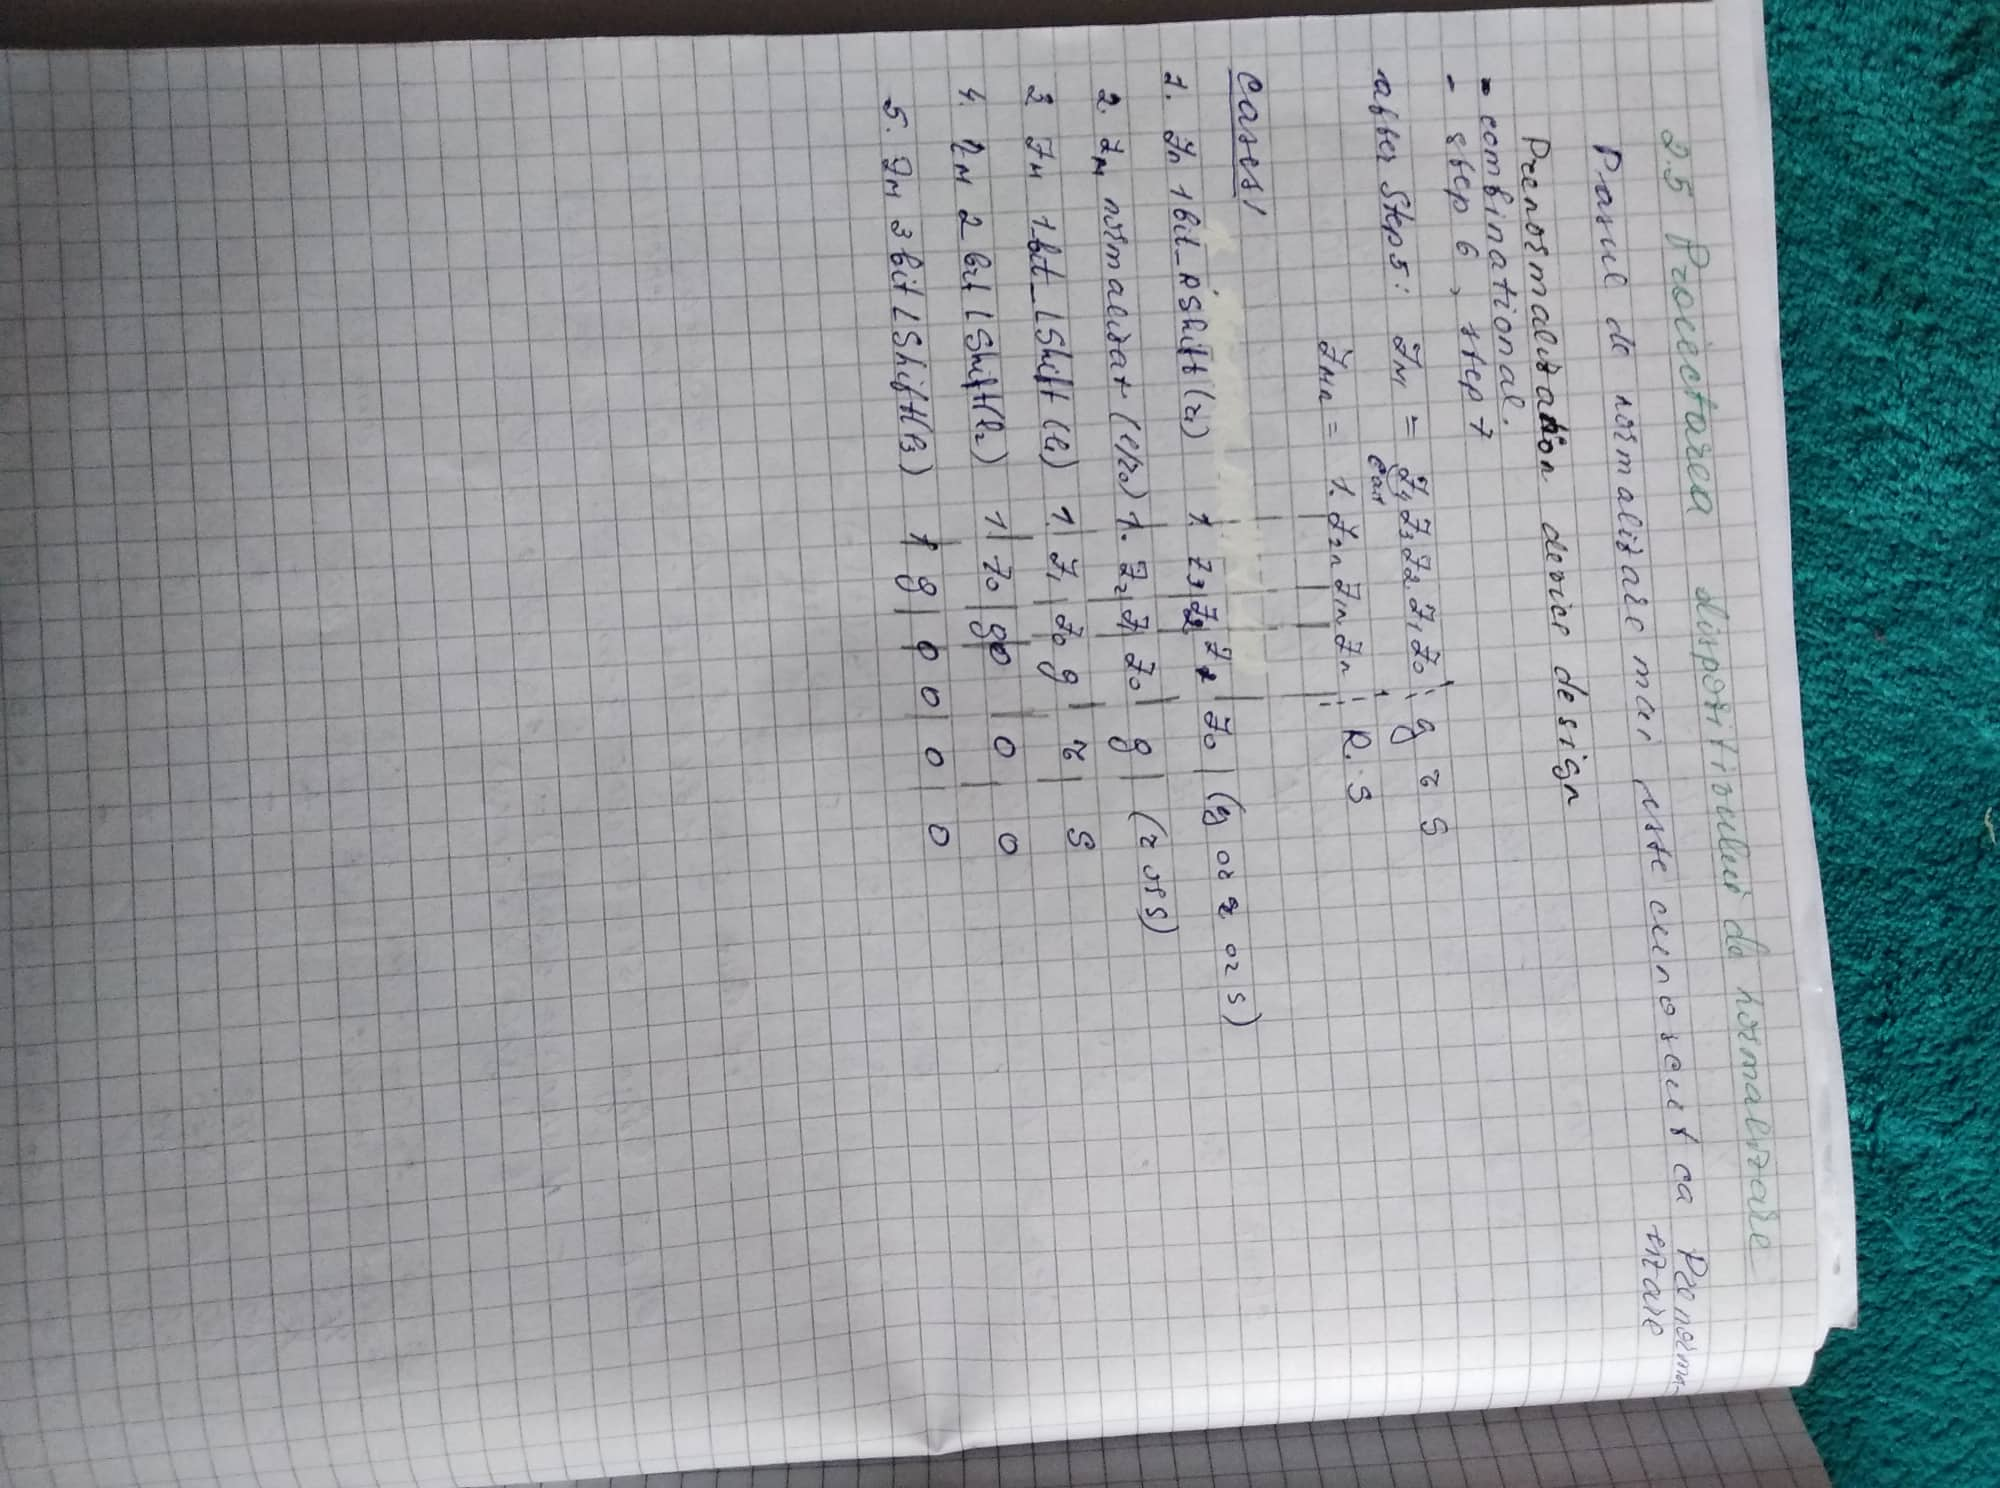 2.5 Proiectarea dispozitivului de normalizare
Pasul de normalizare mai este cunoscut ca Prenorma-
lizare
Prenormalization device design
- combinational
- step 6, step 7
after Step 5: Z_M = Z4 Z3 Z2 Z1 Z0 g r s
Cout
Z_Mn = 1. Z2n Z1n Zn R S
Cases!
1. Zn 1bit_RShift (r1) 1. Z3 Z2 Z1 Z0 (g or r or s)
2. Z_M normalizat (l/r0) 1. Z2 Z1 Z0 g (r or s)
3 Z_M 1bit_LShift (l1) 1. Z1 Z0 g r s
4. Z_M 2 bit LShift (l2) 1 Z0 g 0 0 0
5. Z_M 3 bit LShift (l3) 1 g 0 0 0 0